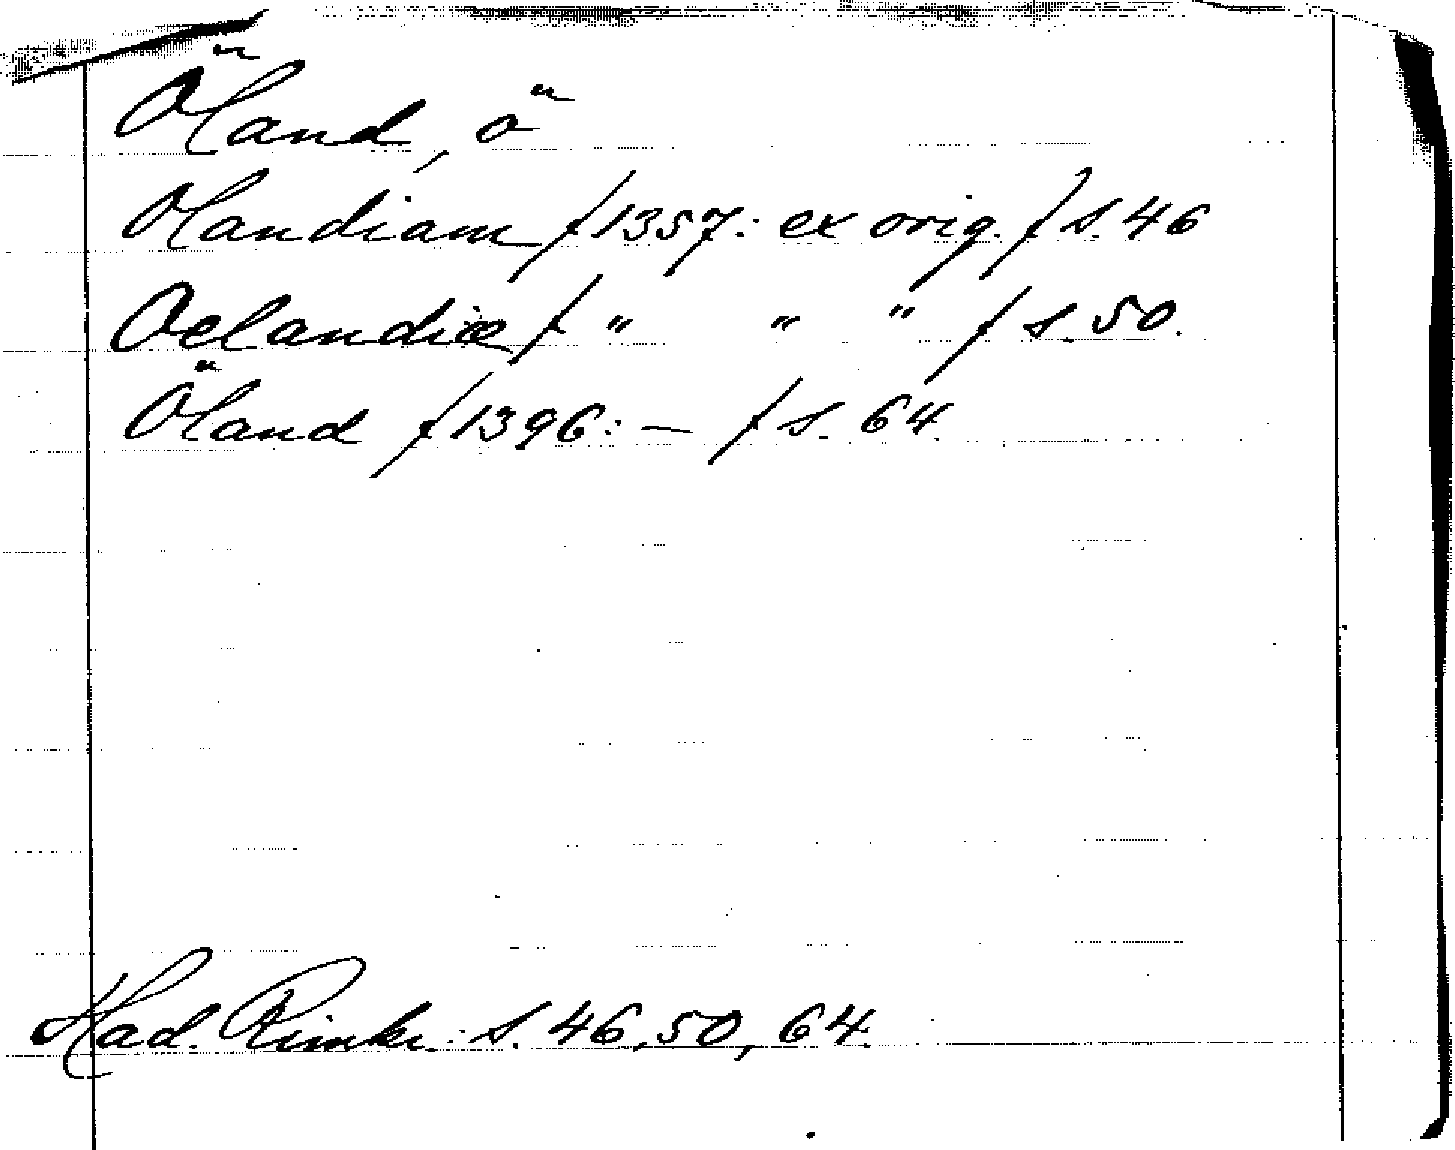 Öland, ö
Olandiam /1357: ex orig./ s. 46
Oelandiæ / " " " / s. 50.
Öland /1396: — / s. 64.
Had. Rimkr.: s. 46, 50, 64.